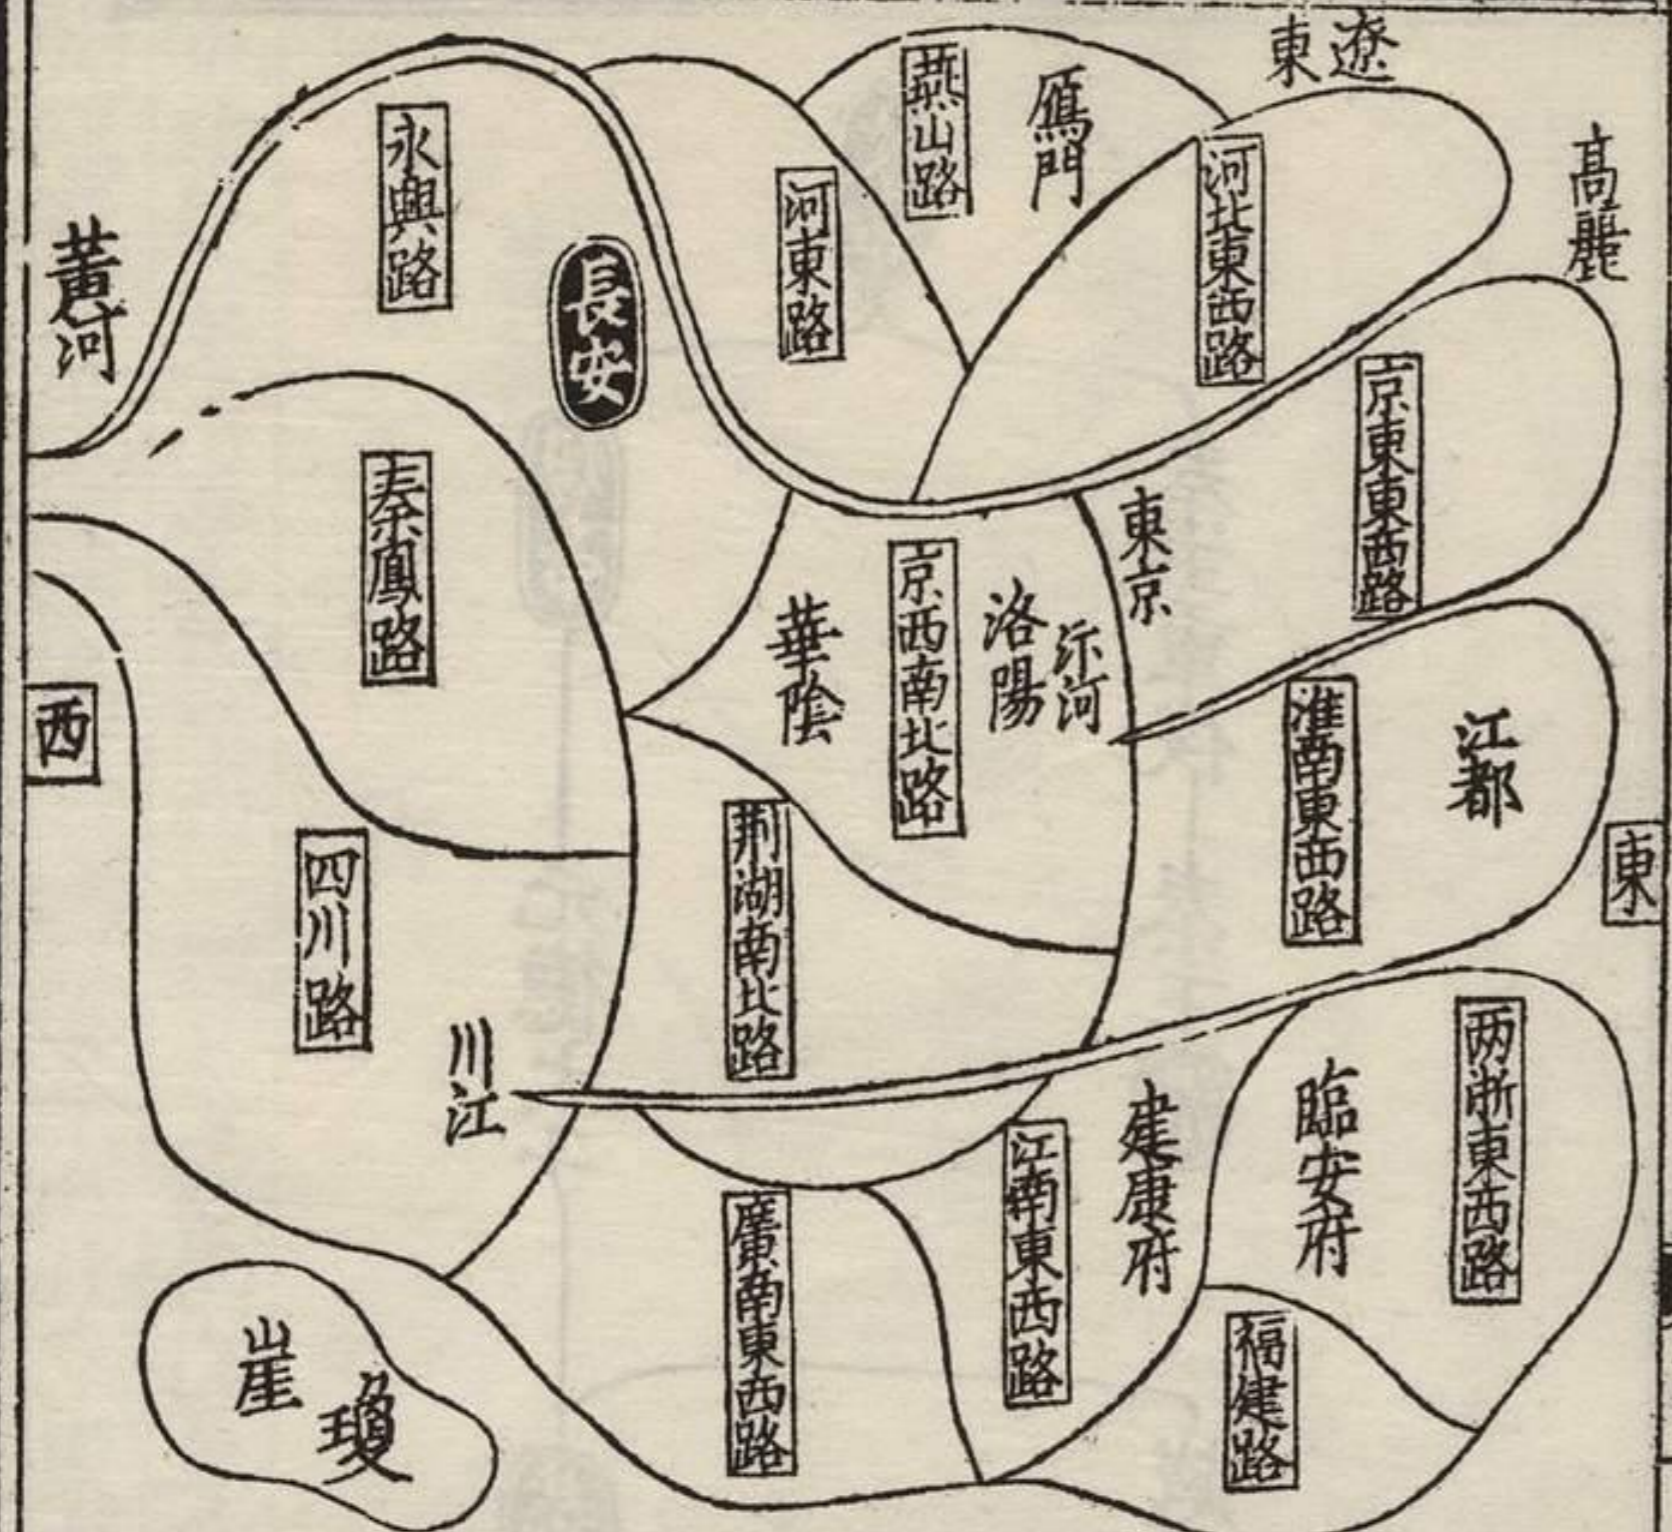 遼東
高麗
鴈門
燕山路
河北東西路
河東路
永興路
長安
黃河
京東東西路
東京
汴河
洛陽
京西南北路
華陰
秦鳳路
西
江都
淮南東西路
東
荆湖南北路
四川路
川江
两浙東西路
臨安府
建康府
江南東西路
福建路
廣南東西路
瓊
崖